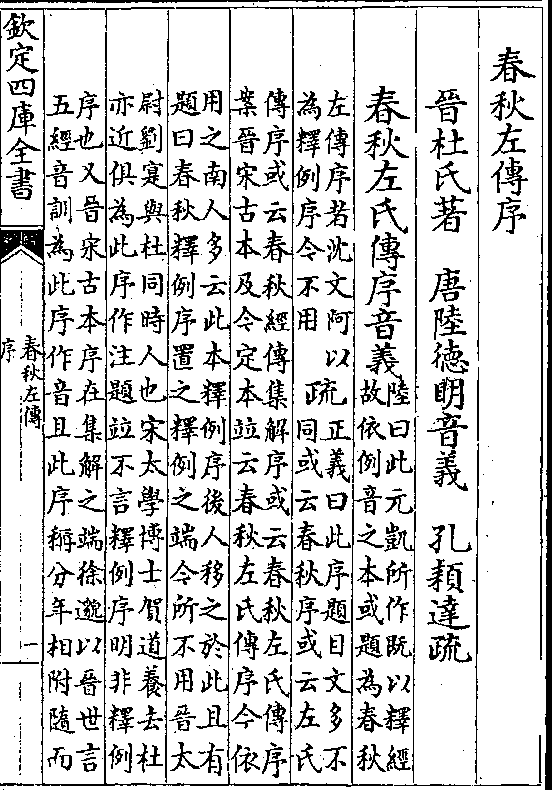 春秋左傳序
晉杜氏著　唐陸德明音義　孔頴達疏
春秋左氏傳序音義
陸曰此元凱所作既以釋經
故依例音之本或題為春秋
左傳序者沈文阿以
為釋例序今不用
疏
正義曰此序題目文多不
同或云春秋序或云左氏
傳序或云春秋經傳集解序或云春秋左氏傳序
案晉宋古本及今定本竝云春秋左氏傳序今依
用之南人多云此本釋例序後人移之於此且有
題曰春秋釋例序置之釋例之端今所不用晉太
尉劉寔與杜同時人也宋太學博士賀道養去杜
亦近俱為此序作注題竝不言釋例序明非釋例
序也又晉宋古本序在集解之端徐邈以晉世言
五經音訓為此序作音且此序稱分年相附隨而
欽定四庫全書
春秋左傳
序
一